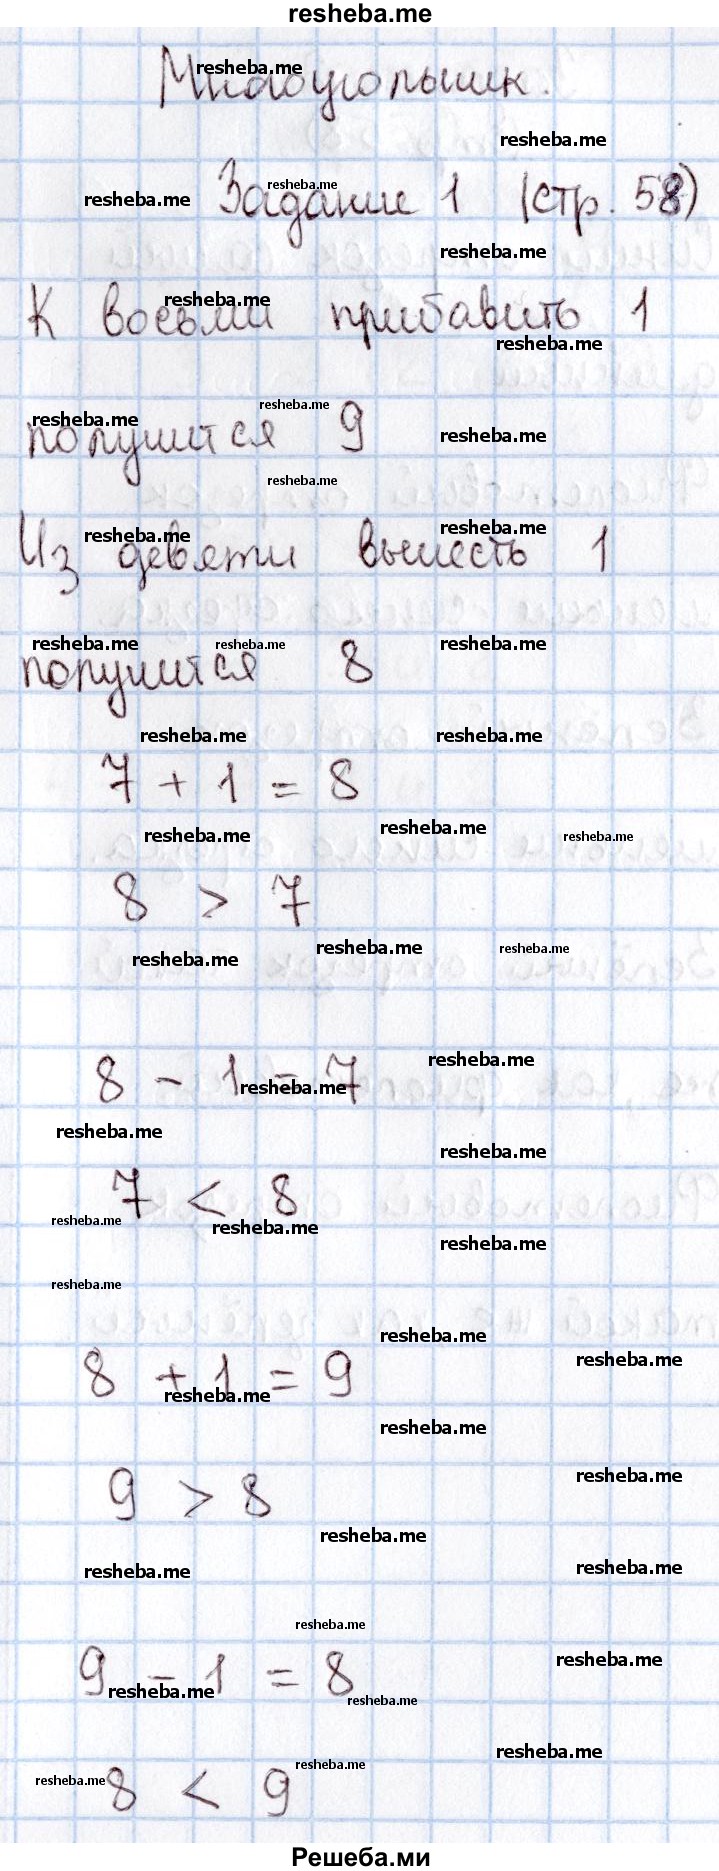 resheba.me
Многоугольник.
Задание 1 (стр. 58)
К восьми прибавить 1
получится 9
Из девяти вычесть 1
получится 8
7 + 1 = 8
8 > 7
8 - 1 = 7
7 < 8
8 + 1 = 9
9 > 8
9 - 1 = 8
8 < 9
Решеба.ми